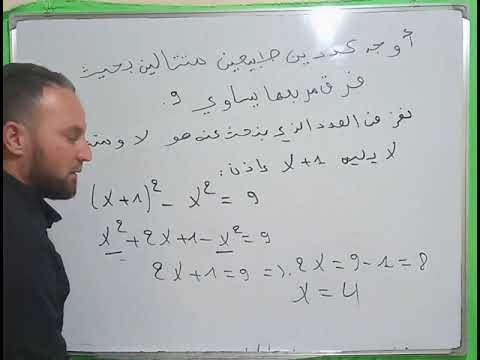 أوجد عددين طبيعيين متتاليين بحيث
فرق مربعهما يساوي 9.
نفرض العدد الذي نبحث عنه هو x
x يليه x+1 إذن:
(x+1)² - x² = 9
x² + 2x + 1 - x² = 9
2x + 1 = 9 => 2x = 9 - 1 = 8
x = 4